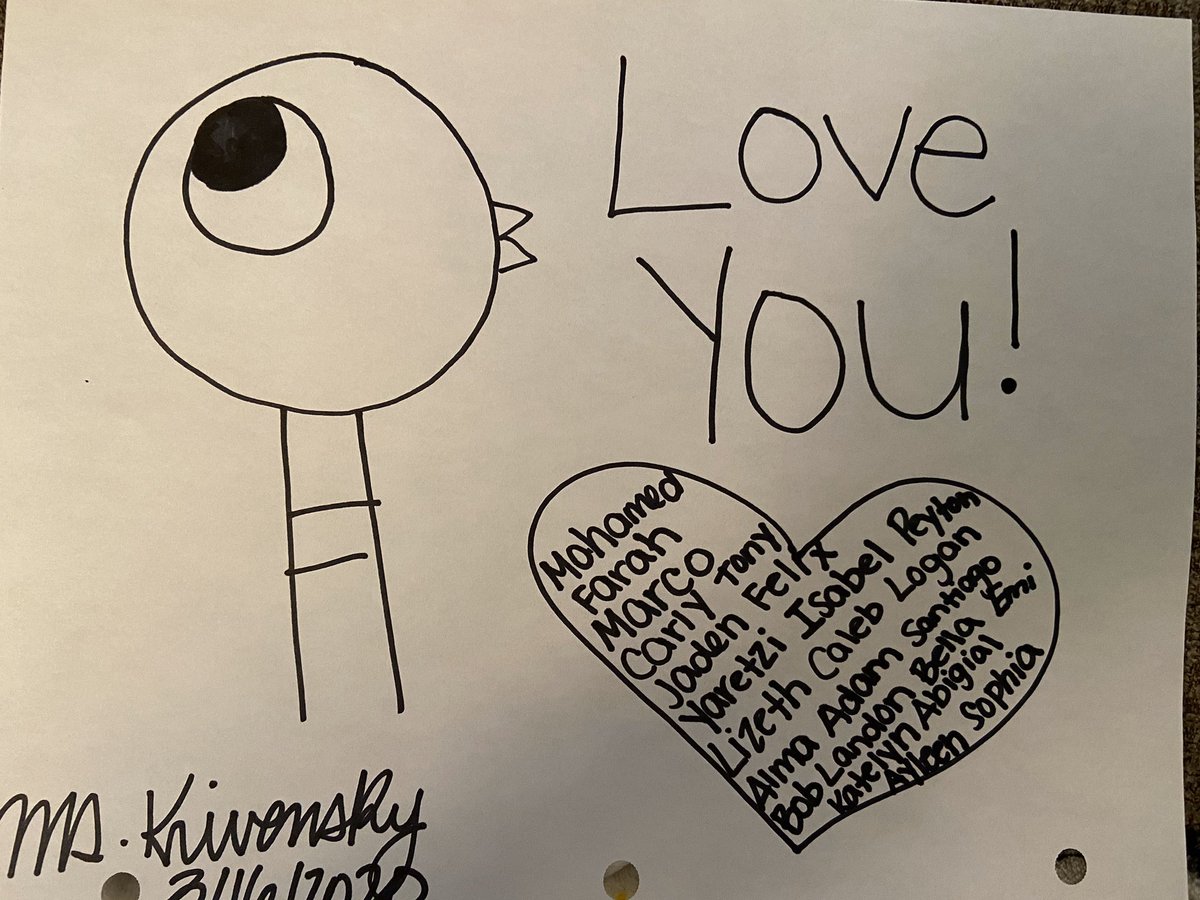 Love
You!
Mohamed
Farah
Marco
Carly Tony
Jaden Felix
Yaretzi Isabel Peyton
Lizeth Caleb Logan
Alma Adam Santiago
Bob Landon Bella Emi
Katelyn Abigial
Ayleen Sophia
Ms. Krivonsky
3/16/2020